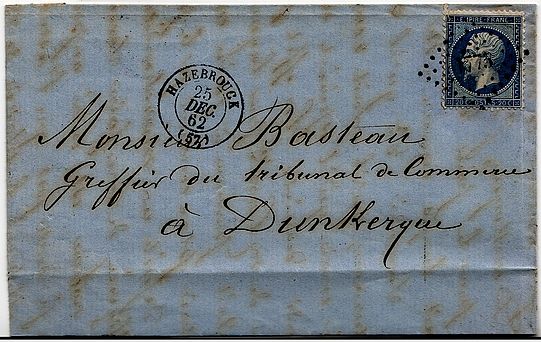 EMPIRE FRANC
20 C POSTES 20 C
HAZEBROUCK
25
DEC.
62
(57)
Monsieur Basteau
Greffier du tribunal de Commerce
à Dunkerque